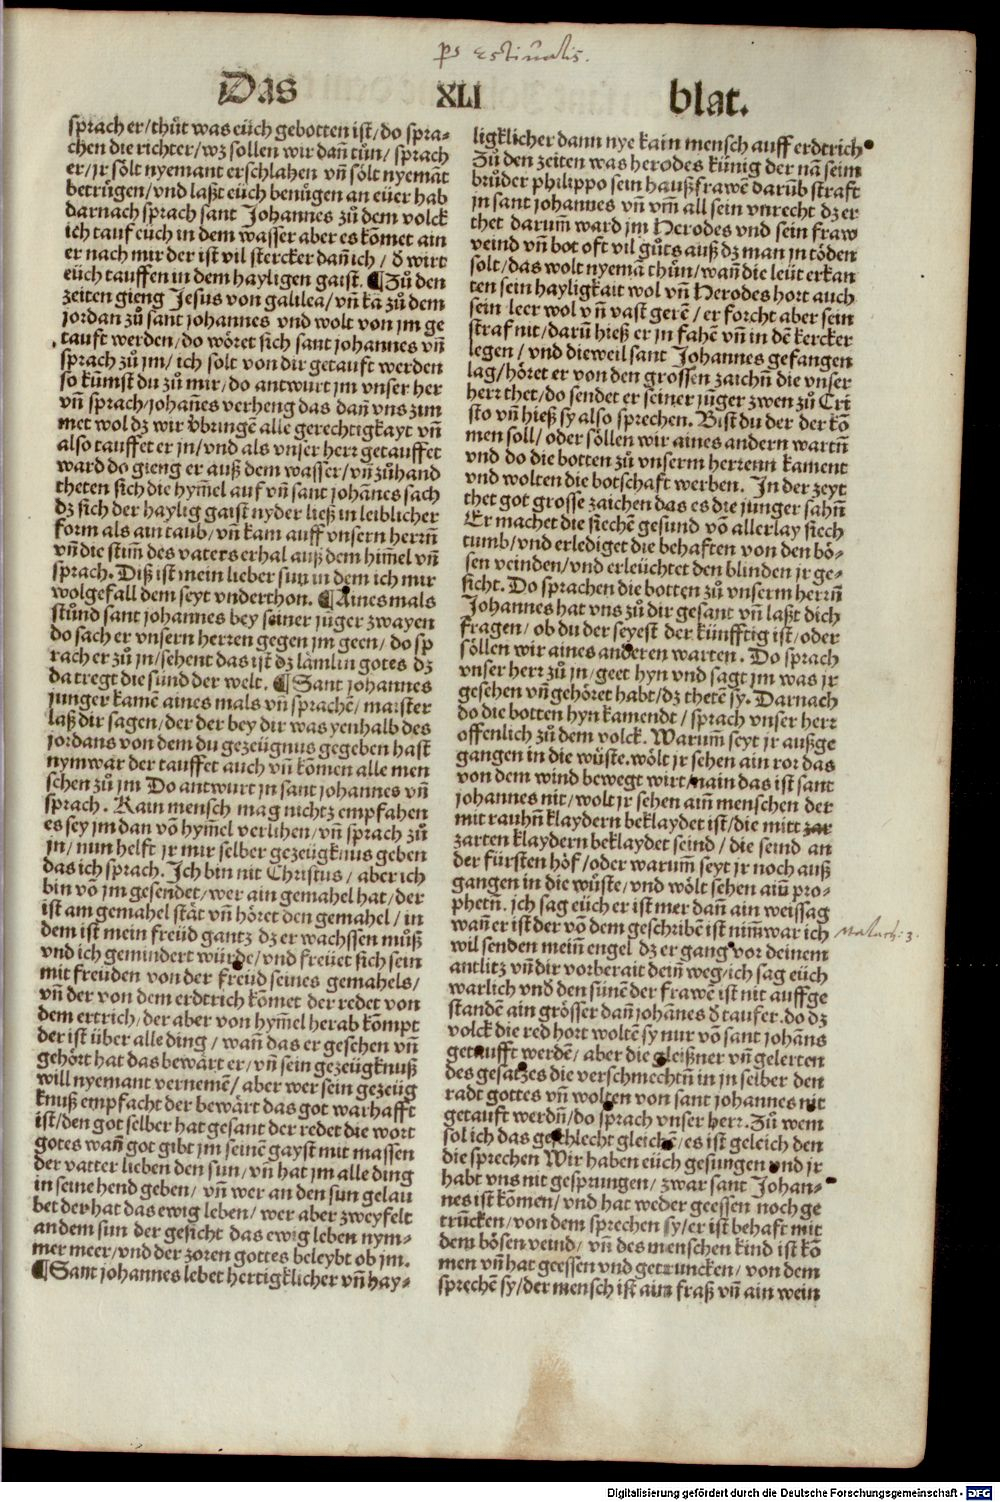 ps estiualis.
Das XLI blat.
sprach er/thuͤt was eüch gebotten ist/do spra-
chen die richter/wz sollen wir dañ tuͦn/ sprach
er/jr soͤlt nyemant erschlahen vñ soͤlt nyemãt
betruͤgen/vnd laßt eüch benuͤgen an eüer hab
darnach sprach sant Johannes zuͦ dem volck
ich tauf euch in dem wasser aber es kõmet ain
er nach mir der ist vil stercker dañ ich / d̕ wirt
eüch tauffen in dem hayligen gaist. ¶Zuͦ den
zeiten gieng Jesus von galilea/vñ kã zuͦ dem
jordan zuͦ sant johannes vnd wolt von jm ge
tauft werden/do woͤret sich sant johannes vñ
sprach zuͦ jm/ ich solt von dir getauft werden
so kumst du zuͦ mir/do antwurt jm vnser her
vñ sprach/johañes verheng das dañ vns zim
met wol dz wir v̕bringẽ alle gerechtigkayt vñ
also tauffet er jn/vnd als vnser herr getauffet
ward do gieng er auß dem wasser/vñ zuͦhand
theten sich die hym̃el auf vñ sant johãnes sach
dz sich der haylig gaist nyder ließ in leiblicher
form als ain taub/vñ kam auff vnsern herrñ
vñ die stim̃ des vaters erhal auß dem him̃el vñ
sprach. Diß ist mein lieber sun in dem ich mir
wolgefall dem seyt vnderthon. ¶Aines mals
stuͦnd sant johannes bey seiner jüger zwayen
do sach er vnsern herren gegen jm geen/ do sp
rach er zuͦ jn/sehent das ist dz laͤmlin gotes dz
da tregt die sünd der welt. ¶Sant johannes
junger kamẽ aines mals vñ sprachẽ/ maister
laß dir sagen/der der bey dir was yenhalb des
jordans von dem du gezeügnus gegeben hast
nym war der tauffet auch vñ kõmen alle men
schen zuͦ jm Do antwurt jn sant johannes vñ
sprach. Kain mensch mag nichtz empfahen
es sey jm dan võ hym̃el verlihen/vñ sprach zuͦ
jn/ nun helft jr mir selber gezeügknus geben
das ich sprach. Ich bin nit Christus/ aber ich
bin võ jm gesendet/wer ain gemahel hat/der
ist am gemahel staͤt vñ hoͤret den gemahel/ in
dem ist mein freüd gantz dz er wachssen muͦß
vnd ich gemindert würde/vnd freüet sich sein
mit freuden von der freüd seines gemahels/
vñ der von dem erdtrich kõmet der redet von
dem ertrich/der aber von hym̃el herab kõmpt
der ist über alle ding / wañ das er gesehen vñ
gehoͤrt hat das bewaͤrt er/vñ sein gezeügknuß
will nyemant vernemẽ/ aber wer sein gezeüg
knuß empfacht der bewaͤrt das got warhafft
ist/den got selber hat gesant der redet die wort
gotes wañ got gibt jm seinẽ gayst mit massen
der vatter lieben den sun/vñ hat jm alle ding
in seine hend geben/ vñ wer an den sun gelau
bet der hat das ewig leben/ wer aber zweyfelt
an dem sun der gesicht das ewig leben nym-
mer meer/vnd der zoren gottes beleybt ob jm.
¶Sant johannes lebet hertigklicher vñ hay-
ligklicher dann nye kain mensch auff erdtrich
Zuͦ den zeiten was herodes künig der nã seim
bruͦder philippo sein haußfrawẽ darũb straft
jn sant johannes vñ vm̃ all sein vnrecht dz er
thet darum̃ ward jm Herodes vnd sein fraw
veind vñ bot oft vil guͦts auß dz man jn toͤden
solt/das wolt nyemã thuͦn/wañ die leüt erkan
ten sein hayligkait wol vñ Herodes hort auch
sein leer wol vñ vast gerẽ/ er forcht aber sein
straf nit/darũ hieß er jn fahẽ vñ in dẽ kercker
legen / vnd dieweil sant Johannes gefangen
lag/hoͤret er von den grossen zaichñ die vnser
herr thet/do sendet er seiner jũger zwen zuͦ Cri
sto vñ hieß sy also sprechen. Bist du der der kõ
men soll/ oder soͤllen wir aines andern wartñ
vnd do die botten zuͦ vnserm herrenn kament
vnd wolten die botschaft werben. In der zeyt
thet got grosse zaichen das es die junger sahñ
Er machet die siechẽ gesund võ allerlay siech
tumb/vnd erlediget die behaften von den boͤ-
sen veinden/vnd erleüchtet den blinden jr ge-
sicht. Do sprachen die botten zuͦ vnserm herrñ
Johannes hat vns zuͦ dir gesant vñ laßt dich
fragen/ ob du der seyest der künfftig ist/oder
soͤllen wir aines anderen warten. Do sprach
vnser herr zuͦ jn/geet hyn vnd sagt jm was jr
gesehen vñ gehoͤret habt/dz thetẽ sy. Darnach
do die botten hyn kamendt / sprach vnser herr
offenlich zuͦ dem volck. Warum̃ seyt jr außge
gangen in die wuͤste.woͤlt jr sehen ain ror das
von dem wind bewegt wirt/nain das ist sant
johannes nit/wolt jr sehen ainñ menschen der
mit rauhñ klaydern beklaydet ist/die mitt zar
zarten klaydern beklaydet seind / die seind an
der fürsten hoͤf/oder warum̃ seyt jr noch auß
gangen in die wuͤste/vnd woͤlt sehen ainñ pro-
phetñ. jch sag eüch er ist mer dañ ain weissag
wañ er ist der võ dem geschribẽ ist nim̃war ich
wil senden meinñ engel dz er gang vor deinem
antlitz vñ dir vorberait deinñ weg/ich sag eüch
warlich vnd̕ den sünẽ der frawẽ ist nit auffge
standẽ ain groͤsser dañ johãnes d̕ taufer.do dz
volck die red hort woltẽ sy nur võ sant johãns
getaufft werdẽ/ aber die gleißner vñ gelerten
des gesatzes die verschmechtñ in jn selber den
radt gottes vñ wolten von sant johannes nit
getauft werdñ/do sprach vnser herr. Zuͦ wem
sol ich das geschlecht gleichẽ/es ist geleich den
die sprechen Wir haben eüch gesungen vnd jr
habt vns nit gesprungen/ zwar sant Johan-
nes ist kõmen/vnd hat weder geessen noch ge
trũcken/von dem sprechen sy/er ist behaft mit
dem boͤsen veind/ vñ des menschen kind ist kõ
men vñ hat geessen vnd getruncken/ von dem
sprechẽ sy/der mensch ist ain fraß vñ ain wein
Malach: 3.
Digitalisierung gefördert durch die Deutsche Forschungsgemeinschaft - DFG